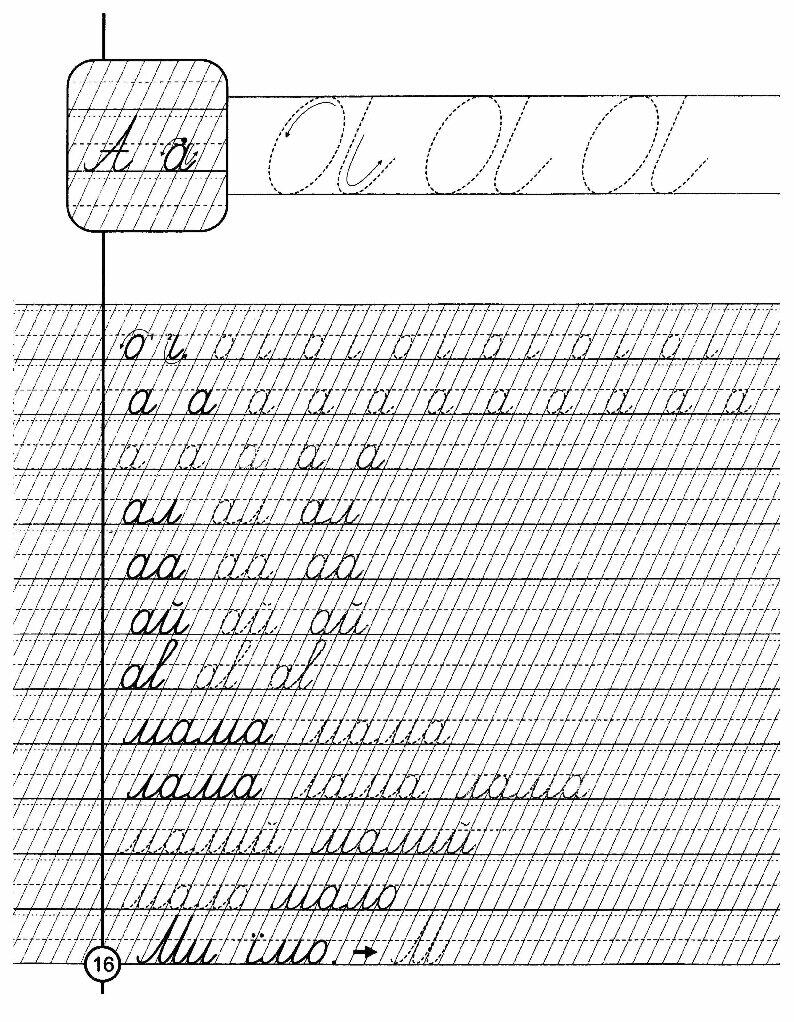 А а а а а
о і о і о і о і о і о і о і
а а а а а а а а а а а
а а а а а
ал ал ал
аа аа аа
ай ай ай
ав ав ав
мама мама
лама лама лама
малий малий
мало мало
Ми їмо. → М
16